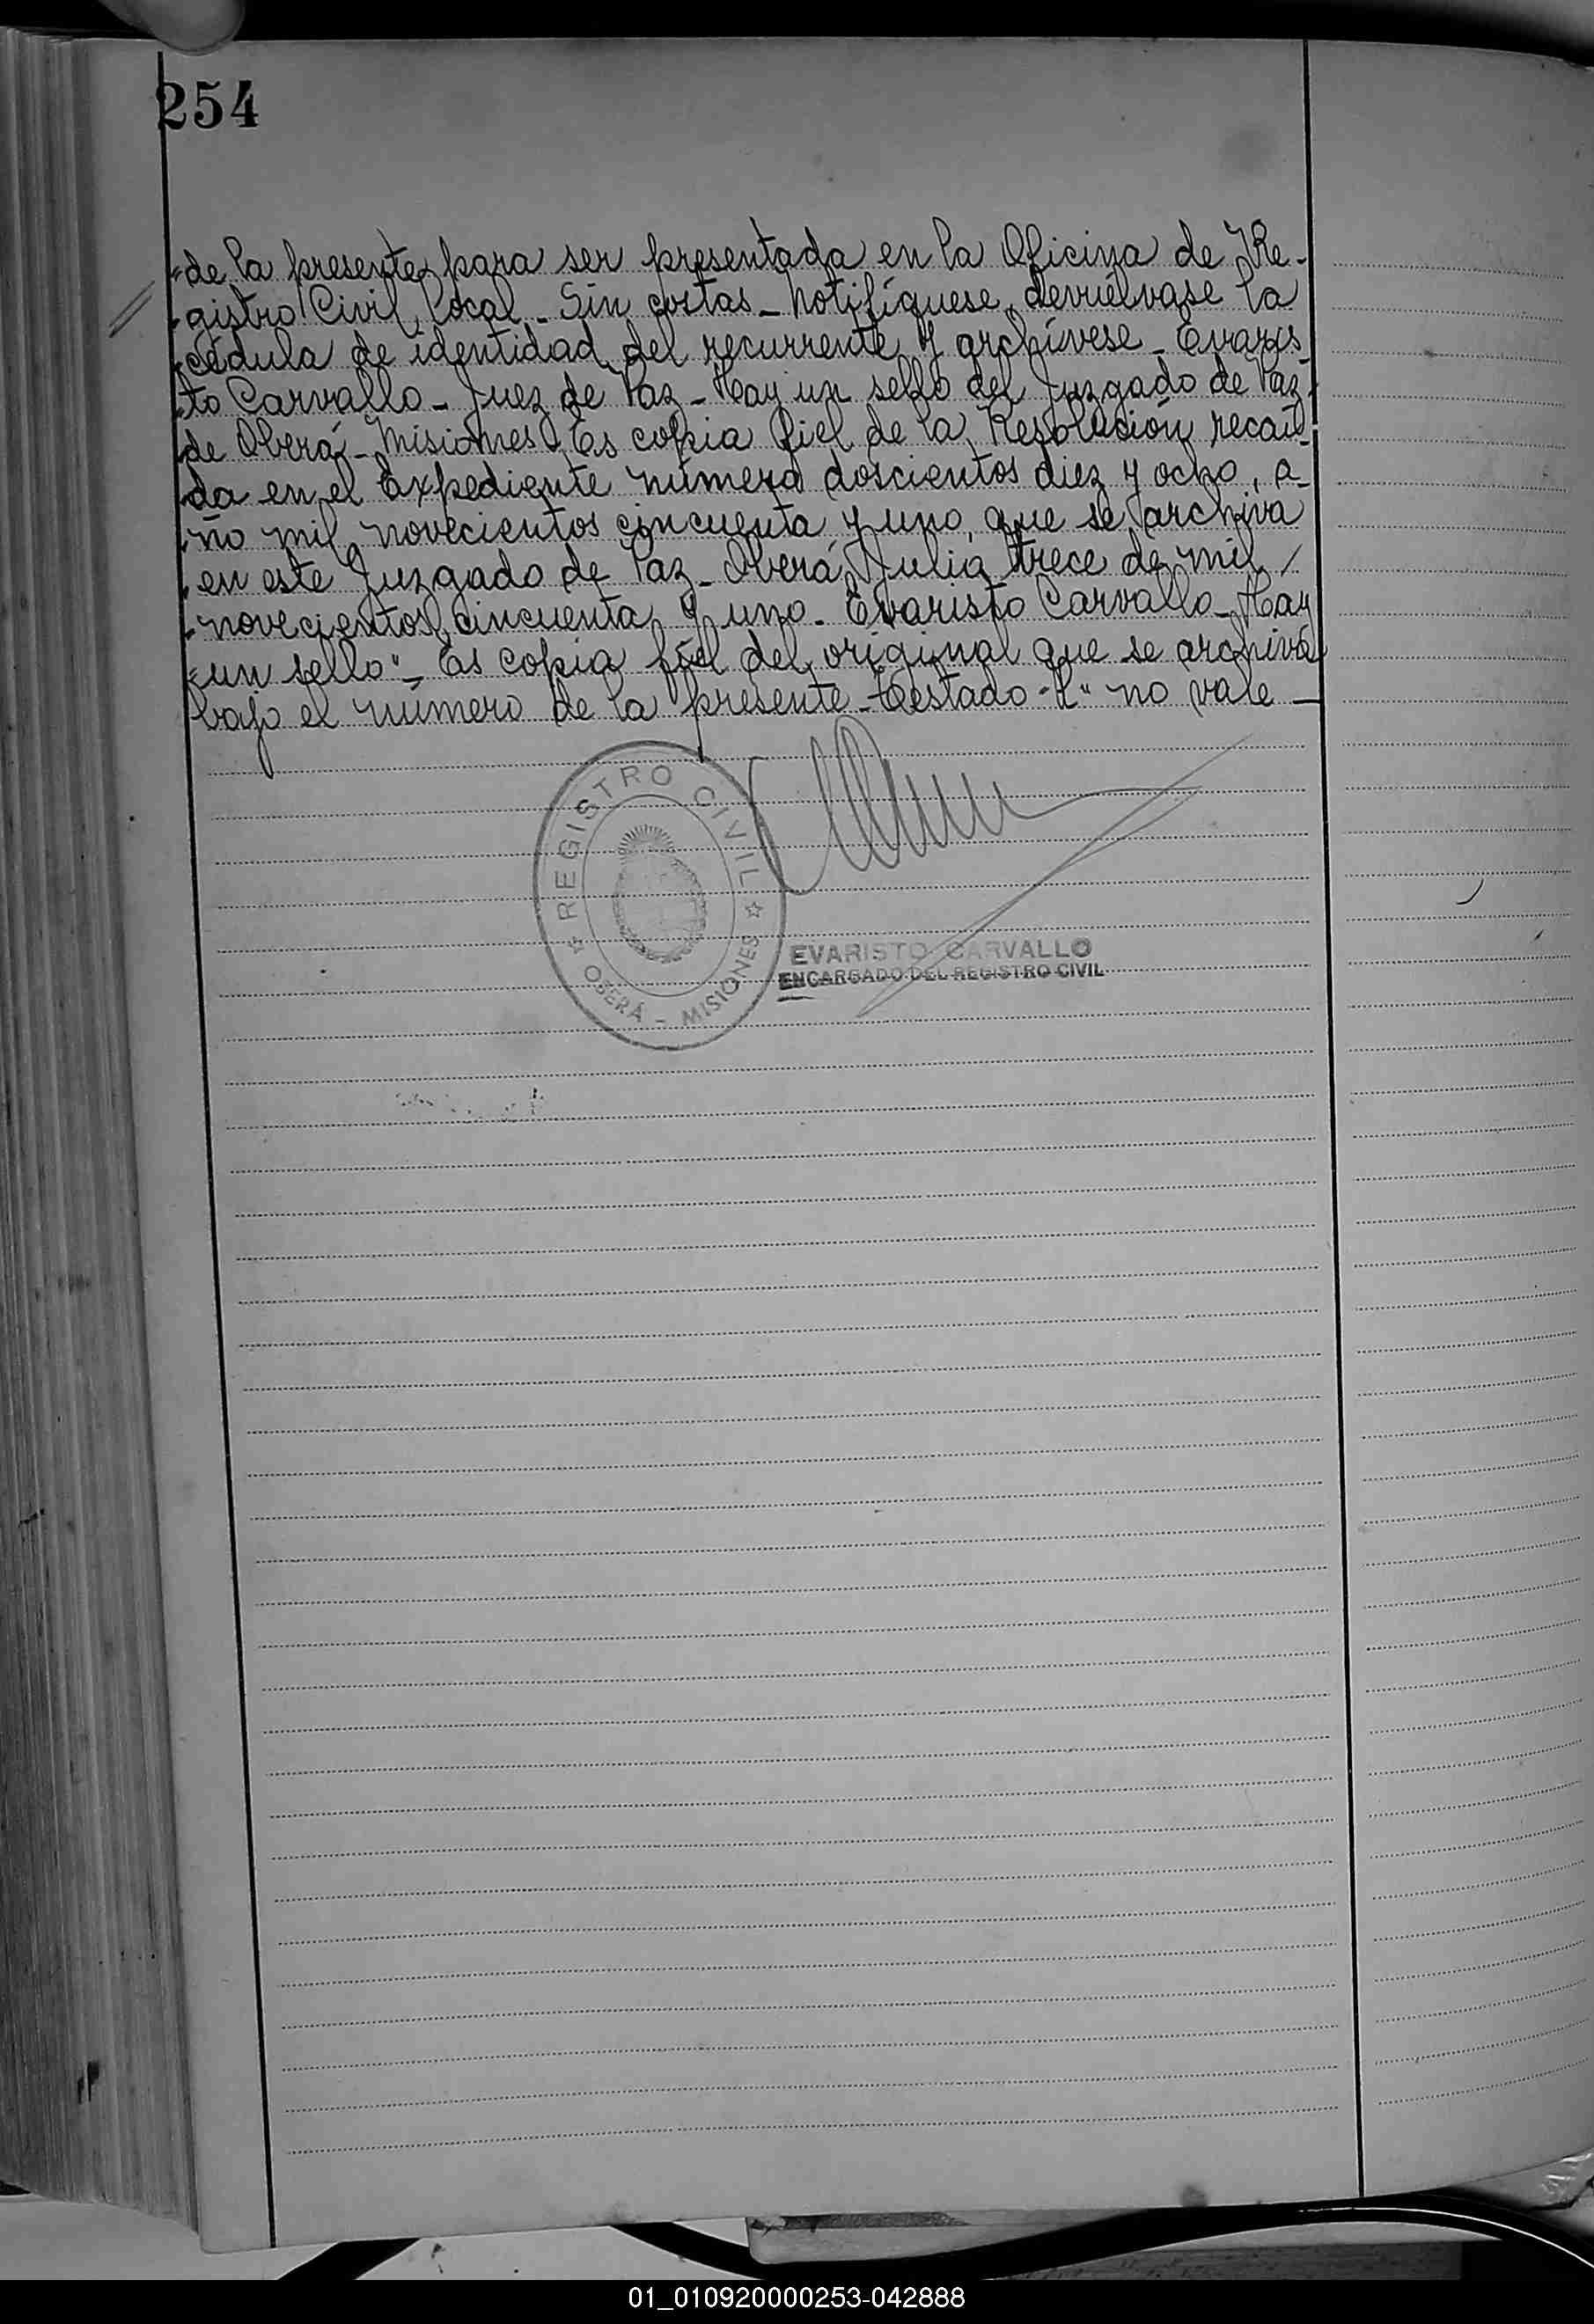 254
"de la presente para ser presentada en la Oficina de Re-
"gistro Civil local - Sin costas - Notifíquese, devuélvase la
"cédula de identidad del recurrente y archívese - Evaris-
"to Carvallo - Juez de Paz - Hay un sello del Juzgado de Paz
"de Oberá - Misiones - Es copia fiel de la Resolución recaí-
"da en el Expediente número doscientos diez y ocho, a-
"ño mil novecientos cincuenta y uno, que se archiva
"en este Juzgado de Paz - Oberá, Julio trece de mil /
"novecientos cincuenta y uno - Evaristo Carvallo - Hay
"un sello" - Es copia fiel del original que se archiva
bajo el número de la presente - Testado - "l" no vale -
REGISTRO CIVIL
OBERÁ - MISIONES
EVARISTO CARVALLO
ENCARGADO DEL REGISTRO CIVIL
01_010920000253-042888